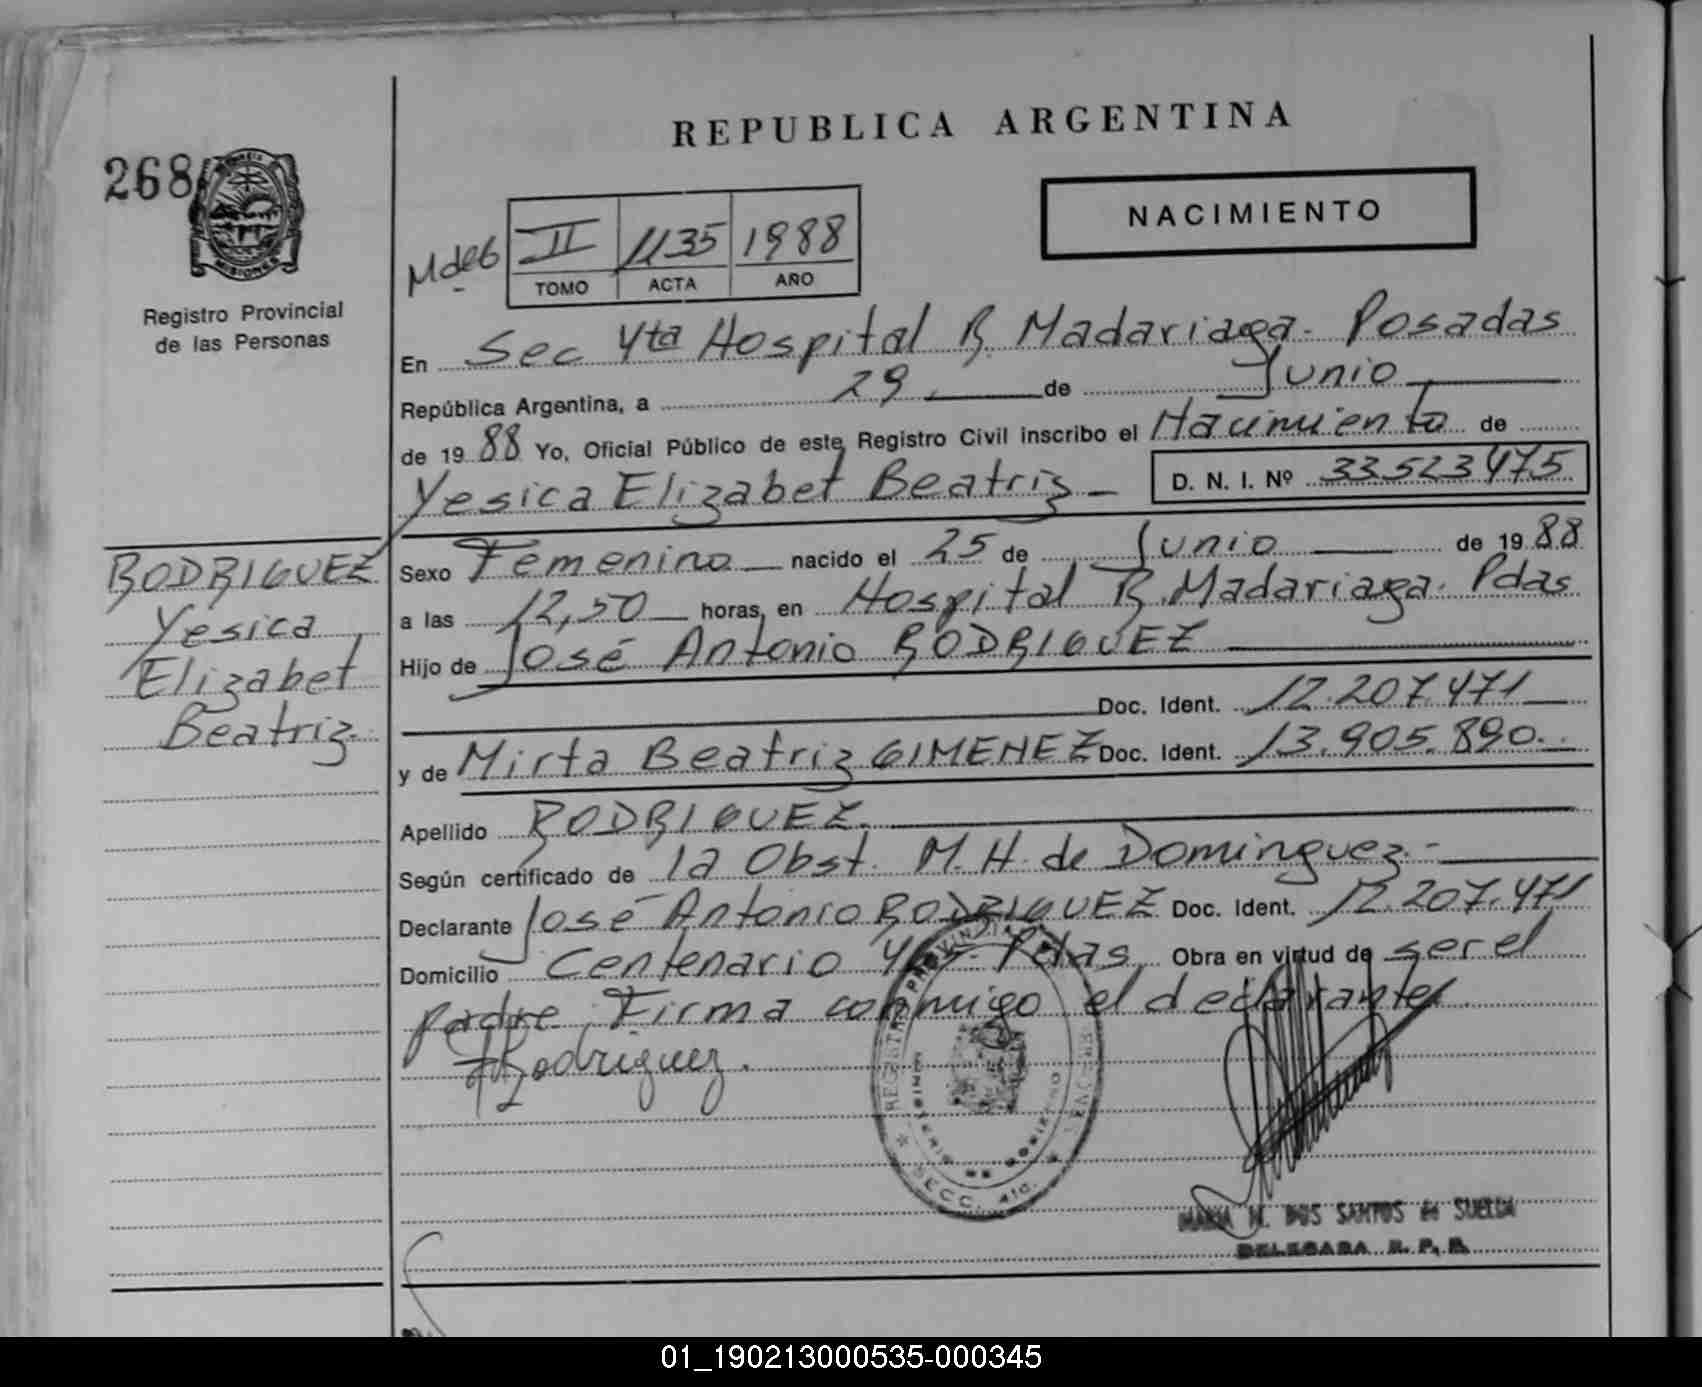 REPUBLICA ARGENTINA
268
MISIONES
Registro Provincial
de las Personas
NACIMIENTO
II 1135 1988
TOMO ACTA AÑO
En Sec 4ta Hospital R. Madariaga - Posadas
República Argentina, a 29 de Junio
de 1988 Yo, Oficial Público de este Registro Civil inscribo el Nacimiento de
Yesica Elizabet Beatriz - D. N. I. Nº 33.523.475
RODRIGUEZ
Yesica
Elizabet
Beatriz.
Sexo Femenino nacido el 25 de Junio de 1988
a las 12,50 horas, en Hospital R. Madariaga. Pdas
Hijo de José Antonio RODRIGUEZ
Doc. Ident. 12.207.471
y de Mirta Beatriz GIMENEZ Doc. Ident. 13.905.890.
Apellido RODRIGUEZ.
Según certificado de la Obst. M. H. de Dominguez.-
Declarante José Antonio RODRIGUEZ Doc. Ident. 12.207.471
Domicilio Centenario Pdas Obra en virtud de ser el
padre. Firma conmigo el declarante.
Rodriguez.
SECC. 4ta.
MARIA M. DOS SANTOS de SUELDA
DELEGADA R. P. P.
01_190213000535-000345